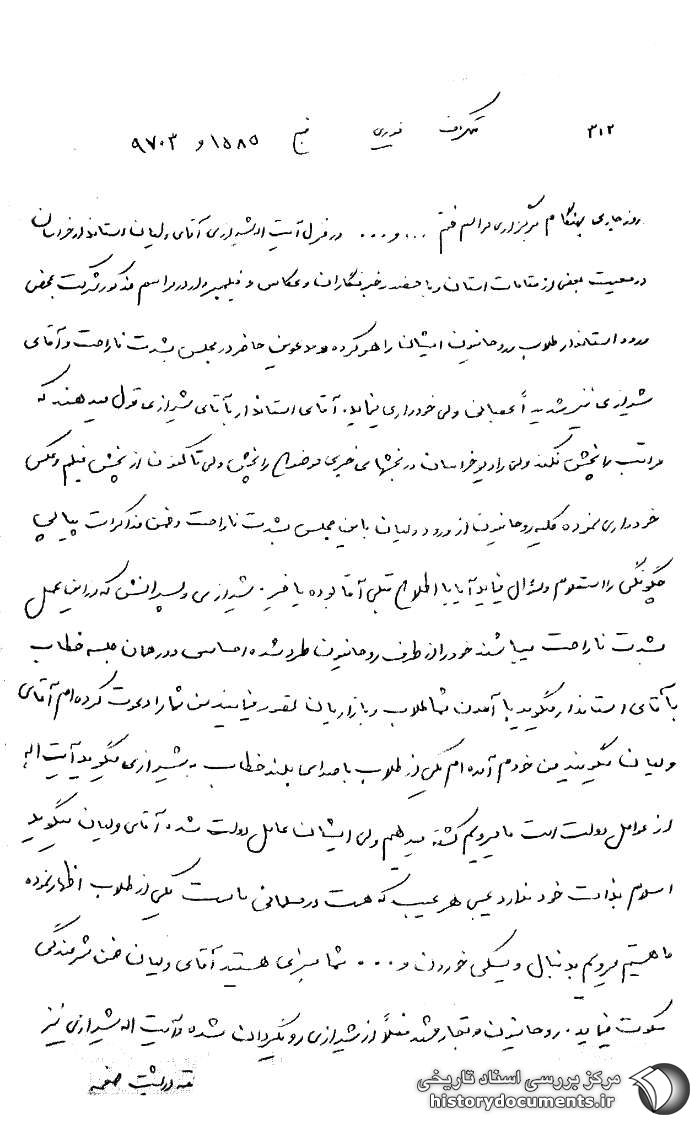 ۳۱۲ تلگراف فوری قم ۱۵۸۵ و ۹۷۰۳
روز جاری بهنگام برگزاری مراسم ختم ... و ... در منزل آیت اله شیرازی آقای ولیان استاندار خراسان
در معیت بعضی از مقامات استان و با حضور خبرنگاران و عکاس و فیلمبردار در مراسم مذکور شرکت بمحض
ورود استاندار طلاب و روحانیون ایشان را هو کرده و مدعوین حاضر در مجلس بشدت ناراحت و آقای
شیرازی نیز شدیداً عصبانی ولی خودداری مینماید. آقای استاندار بآقای شیرازی قول میدهند که
مراتب را پخش نکند ولی رادیو خراسان در بخشهای خبری موضوع را پخش ولی تاکنون از پخش فیلم و عکس
خودداری نموده کلیه روحانیون از ورود ولیان باین مجلس بشدت ناراحت و ضمن مذاکرات پیاپی
چگونگی را استعلام و سئوال مینمایند آیا با اطلاع قبلی آقا بوده یا خیر. شیرازی و پسرانش که از این عمل
بشدت ناراحت میباشند خود را از طرف روحانیون طرد شده احساس و در همان جلسه خطاب
بآقای استاندار میگوید با آمدن شما طلاب و بازاریان تصور مینمایند من شما را دعوت کرده‌ام آقای
ولیان میگویند من خودم آمده‌ام یکی از طلاب با صدای بلند خطاب به شیرازی میگوید آیت اله
از عوامل دولت است ما میرویم کشته میدهیم ولی ایشان عامل دولت شده آقای ولیان میگوید
اسلام بذات خود ندارد عیبی هر عیب که هست در مسلمانی ماست یکی از طلاب اظهار نموده
ما هستیم میرویم بدنبال ویسکی خوردن و ... شما هستید آقای ولیان ضمن شرمندگی
سکوت مینماید. روحانیون و تجار مشهد فعلاً از شیرازی روگردان شده و آیت اله شیرازی نیز
بقیه در پشت صفحه
مرکز بررسی اسناد تاریخی
historydocuments.ir